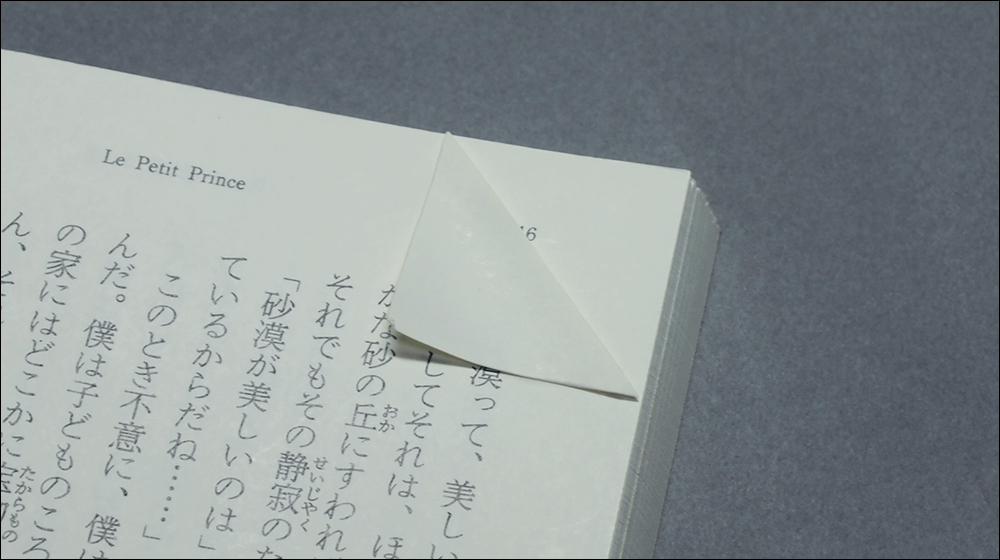 Le Petit Prince
16
漠って、美しい
してそれは、ほ
かな砂の丘にすわれ
おか
それでもその静寂の
せいじゃく
「砂漠が美しいのは」
ているからだね……」
このとき不意に、僕は
んだ。僕は子どものころ
の家にはどこかに宝物
たからもの
ん、そ